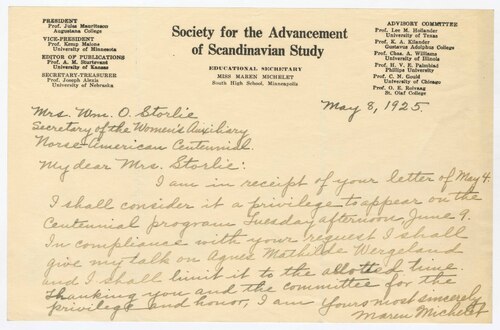 PRESIDENT
Prof. Jules Mauritzson
Augustana College
VICE-PRESIDENT
Prof. Kemp Malone
University of Minnesota
EDITOR OF PUBLICATIONS
Prof. A. M. Sturtevant
University of Kansas
SECRETARY-TREASURER
Prof. Joseph Alexis
University of Nebraska
Society for the Advancement
of Scandinavian Study
EDUCATIONAL SECRETARY
MISS MAREN MICHELET
South High School, Minneapolis
ADVISORY COMMITTEE
Prof. Lee M. Hollander
University of Texas
Prof. K. A. Kilander
Gustavus Adolphus College
Prof. Chas. A. Williams
University of Illinois
Prof. H. V. E. Palmblad
Phillips University
Prof. C. N. Gould
University of Chicago
Prof. O. E. Rolvaag
St. Olaf College
May 8, 1925.
Mrs. Wm. O. Storlie
Secretary of the Women's Auxiliary
Norse-American Centennial.
My dear Mrs. Storlie:
I am in receipt of your letter of May 4.
I shall consider it a privilege to appear on the
Centennial program Tuesday afternoon, June 9.
In compliance with your request I shall
give my talk on Agnes Mathilde Wergeland
and I shall limit it to the allotted time.
Thanking you and the committee for the
privilege and honor, I am Yours most sincerely
Maren Michelet